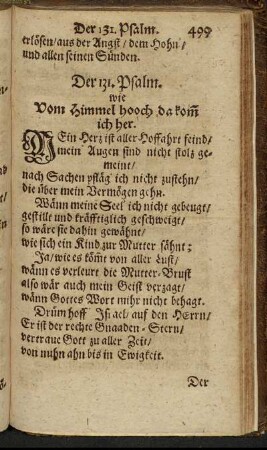 Der 131. Psalm. 499
erlösen/aus der Angst/dem Hohn/
und allen seinen Sünden.
Der 131. Psalm.
wie
Vom Himmel hooch da kom̃
ich her.
MEin Herz ist aller Hoffahrt feind/
mein Augen sind nicht stolz ge-
meint/
nach Sachen pfläg' ich nicht zustehn/
die über mein Vermögen gehn.
Wänn meine Seel' ich nicht gebeugt/
gestille und kräfftiglich geschweigt/
so wäre sie dahin gewähnt/
wie sich ein Kind zur Mutter sähnt;
Ja/wie es kömt von aller Lust/
wänn es verleurt die Mutter-Brust
also wär auch mein Geist verzagt/
wänn Gottes Wort mihr nicht behagt.
Drüm hoff Israel/auf den HErrn/
Er ist der rechte Gnaaden-Stern/
vertraue Gott zu aller Zeit/
von nuhn ahn bis in Ewigkeit.
Der